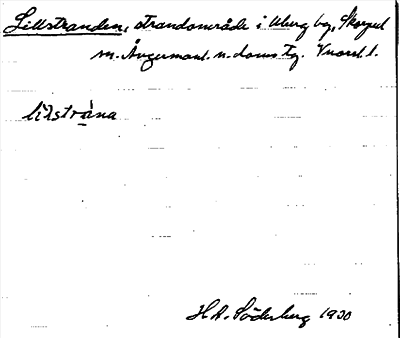 Lillstranden, strandområde i Uberg by, Skorped
sn. Ångermanl. n. doms tg. Vnorrl. l.
lilstràna
H. A. Söderberg 1930